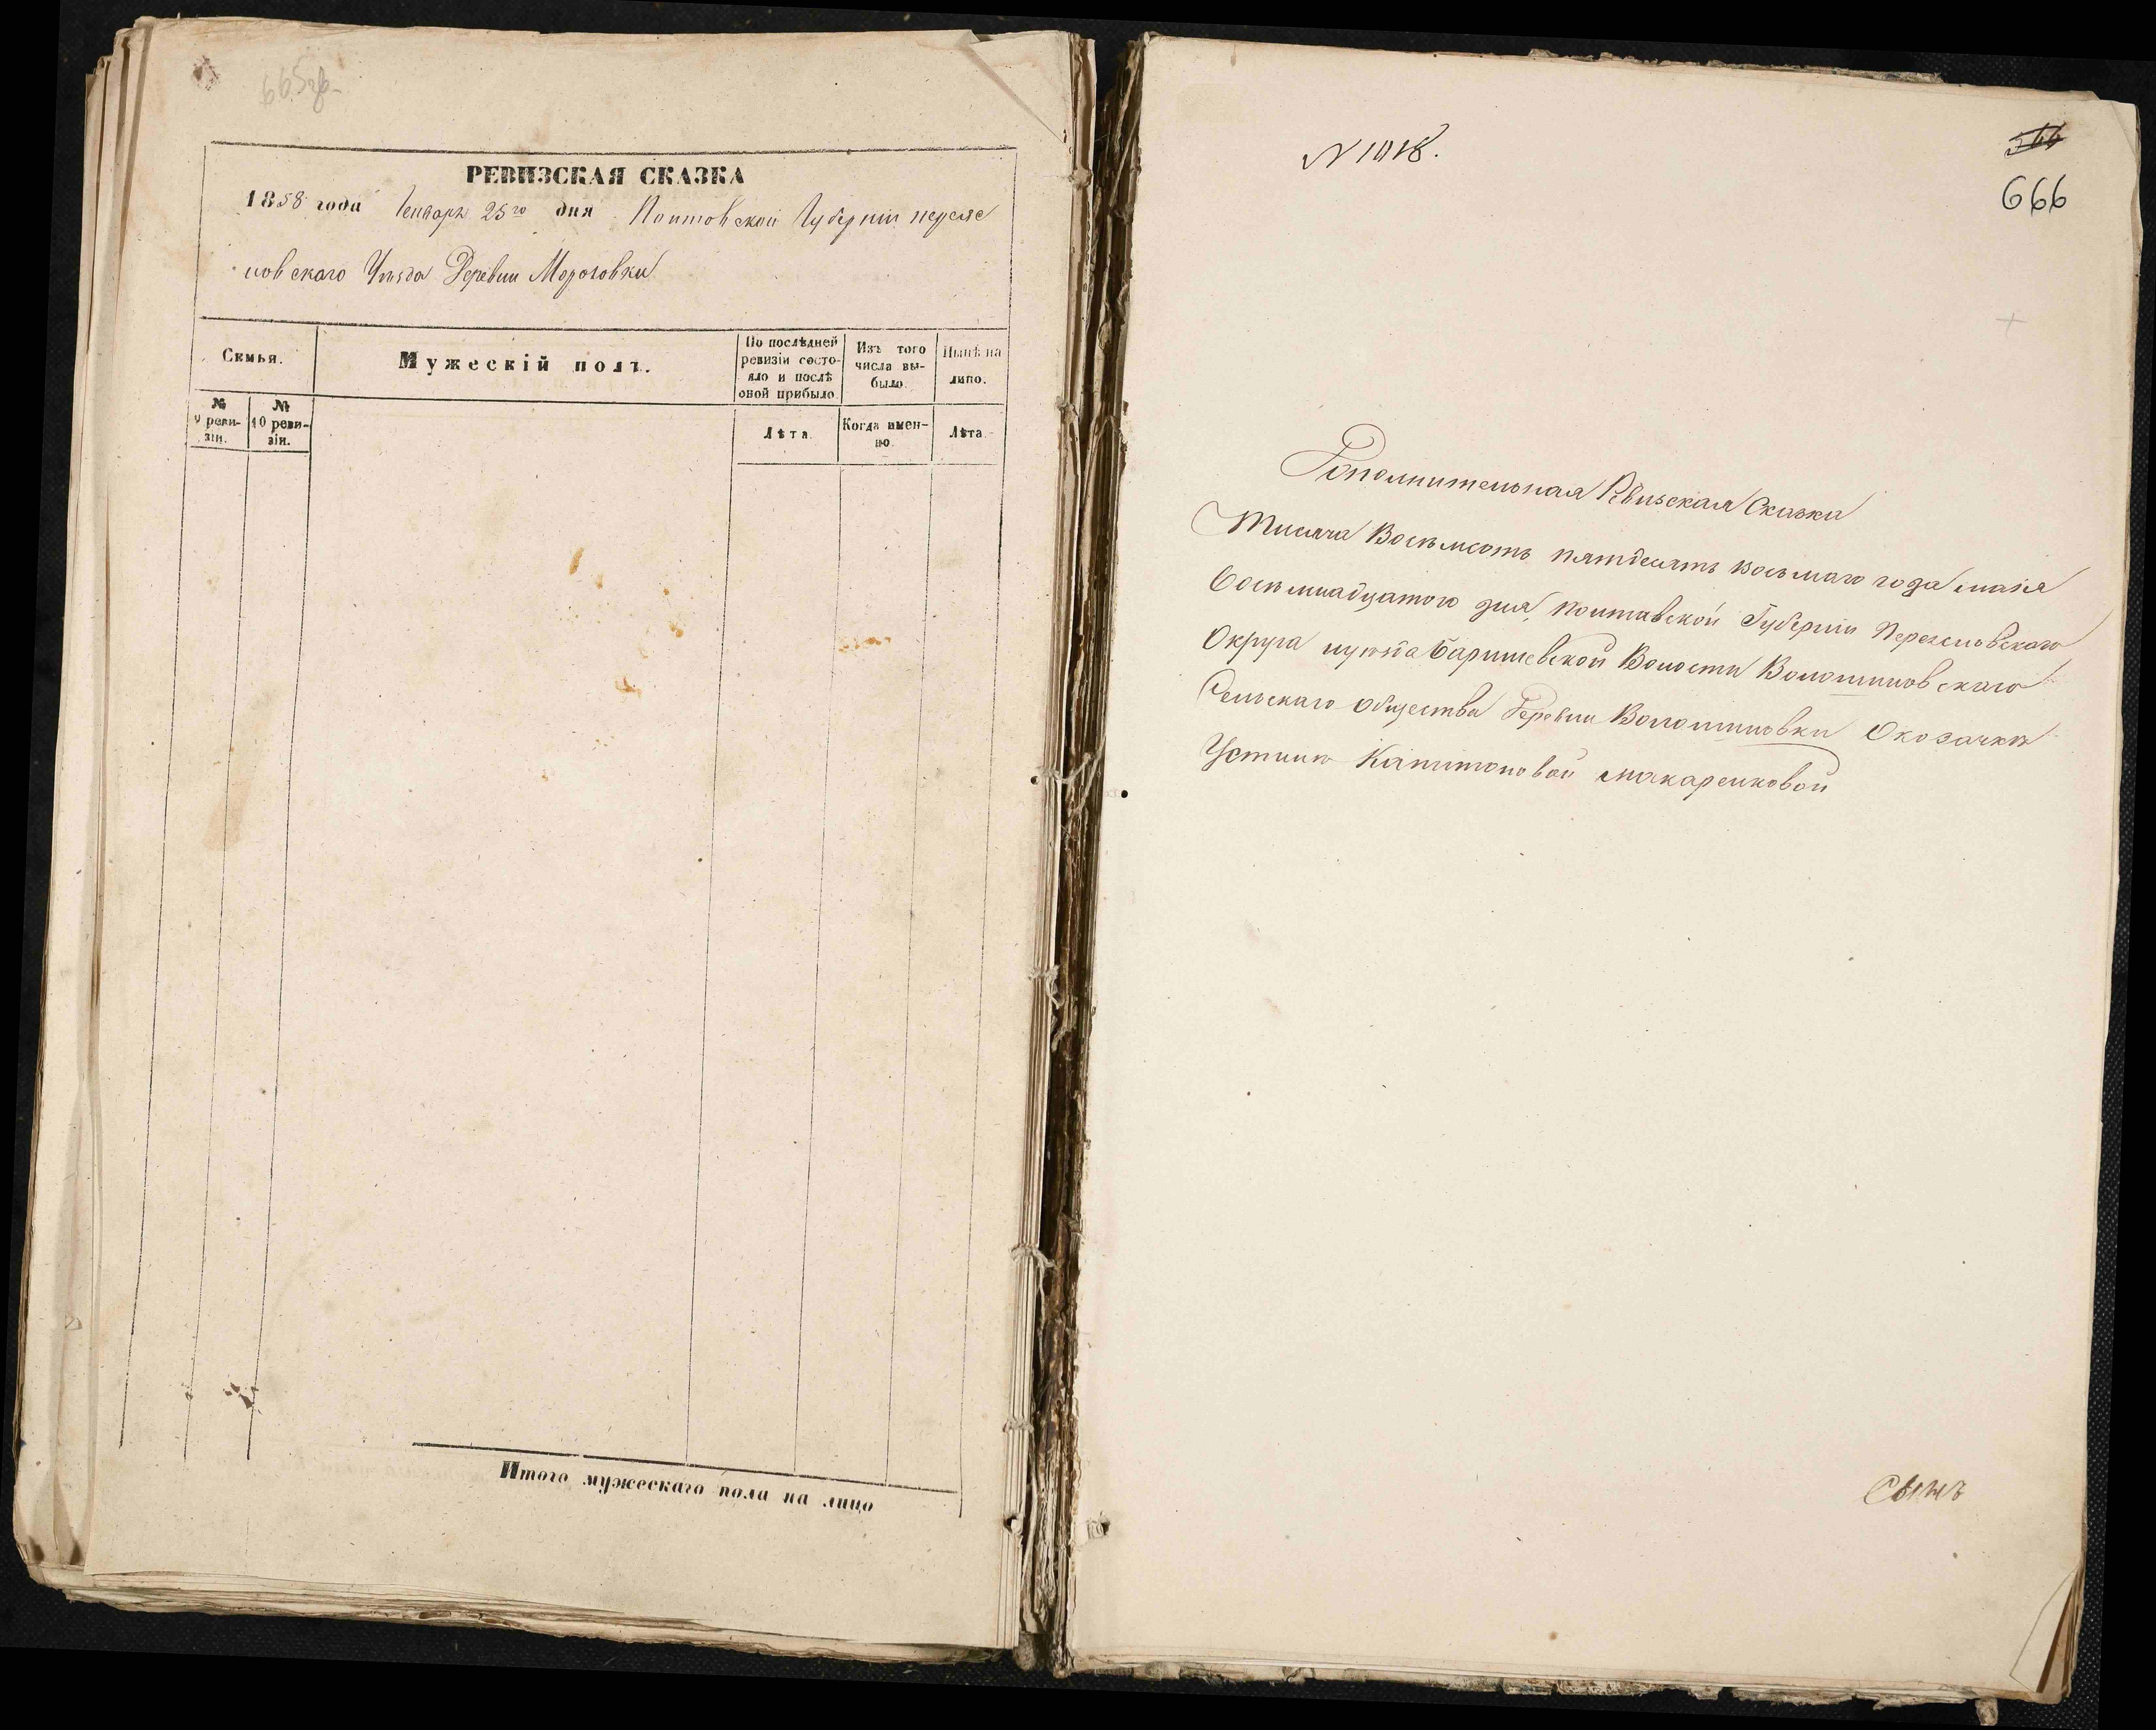 665об-
РЕВИЗСКАЯ СКАЗКА
1858 года Генваря 25го дня Полтовской Губерніи переяс
ловскаго Уѣзда Деревни Морозовки
Семья.
Мужескій полъ.
По послѣдней ревизіи состояло и послѣ оной прибыло.
Изъ того числа выбыло.
Нынѣ на лицо.
№ 9 ревизіи.
№ 10 ревизіи.
Лѣта.
Когда именно.
Лѣта.
Итого мужескаго пола на лицо
N 1018.
566
666
Дополнительная Ревизская Сказка
Тисяча Восьмсотъ пятдесятъ восьмаго года маия
Восьмнадцатого дня, Полтавской Губерніи Переясловскаго
Округа иуѣзда Баришевской Волости Волошиновскаго
Сельскаго общества Деревни Волошиновки Окозачкѣ
Устинѣ Капитоновой макаренковой
Сынъ